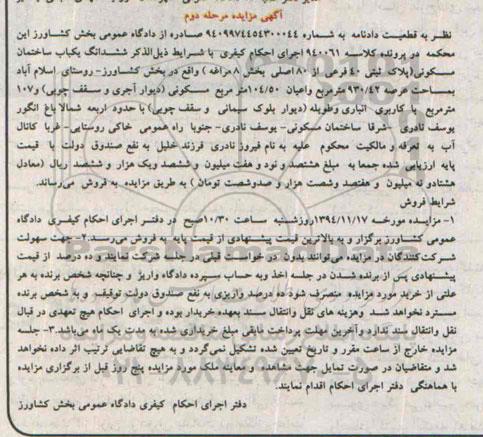 آگهی مزایده مرحله دوم
نظر به قطعیت دادنامه به شماره ۹۴۰۹۹۷۴۴۵۴۳۰۰۰۴۴ صادره از دادگاه عمومی بخش کشاورز این
محکمه در پرونده کلاسه ۹۴۰۰۶۱ اجرای احکام کیفری با شرایط ذیل الذکر ششدانگ یکباب ساختمان
مسکونی(پلاک ثبتی ۴۰ فرعی از ۸۰اصلی بخش ۸مراغه ) واقع در بخش کشاورز- روستای اسلام آباد
بمساحت عرصه ۹۳۰/۴۲ مترمربع واعیان ۱۰۴/۵۰متر مربع مسکونی (دیوار آجری و سقف چوبی) و۱۰۷
مترمربع با کاربری انباری وطویله (دیوار بلوک سیمانی و سقف چوبی) با حدود اربعه شمالا باغ انگور
یوسف نادری -شرقا ساختمان مسکونی- یوسف نادری- جنوبا راه عمومی خاکی روستایی- غربا کانال
آب به تعرفه و مالکیت محکوم علیه به نام فیروز نادری فرزند خلیل به نفع صندوق دولت با قیمت
پایه ارزیابی شده جمعا به مبلغ هشتصد و نود و هفت میلیون و ششصد ویک هزار و ششصد ریال (معادل
هشتادو نه میلیون و هفتصد وشصت هزار و صدوشصت تومان ) به طریق مزایده به فروش می‌رساند.
شرایط فروش
۱- مزایده مورخه ۱۳۹۴/۱۱/۱۷روزشنبه ساعت ۱۰/۳۰صبح در دفتر اجرای احکام کیفری دادگاه
عمومی کشاورز برگزار و به بالاترین قیمت پیشنهادی از قیمت پایه به فروش می‌رسد.۲- جهت سهولت
شرکت‌کنندگان در مزایده می‌توانند بدون در خواست قبلی در جلسه شرکت نمایند و ده درصد از قیمت
پیشنهادی پس از برنده شدن در جلسه اخذ وبه حساب سپرده دادگاه واریز و چنانچه شخص برنده به هر
علتی از خرید مورد مزایده منصرف شود ده درصد واریزی به نفع صندوق دولت توقیف و به شخص برنده
مسترد نخواهد شد وهزینه های نقل وانتقال سند بعهده خریدار بوده و اجرای احکام هیچ تعهدی در قبال
نقل وانتقال سند ندارد وآخرین مهلت پرداخت مابقی مبلغ خریداری شده به مدت یک ماه می‌باشد.۳- جلسه
مزایده خارج از ساعت مقرر و تاریخ تعیین شده تشکیل نمی‌گردد و به هیچ تقاضایی ترتیب اثر داده نخواهد
شد و متقاضیان در صورت تمایل جهت مشاهده و معاینه ملک مورد مزایده پنج روز قبل از برگزاری مزایده
با هماهنگی دفتر اجرای احکام اقدام نمایند.
دفتر اجرای احکام کیفری دادگاه عمومی بخش کشاورز